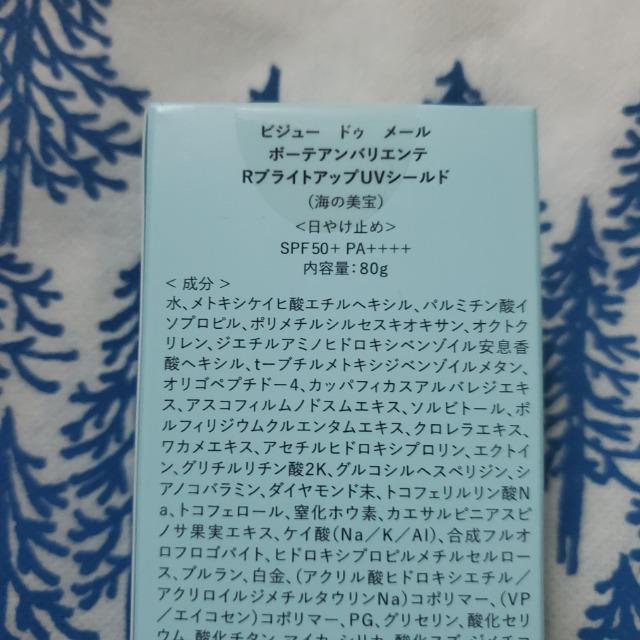 ビジュー ドゥ メール
ボーテアンバリエンテ
RブライトアップUVシールド
(海の美宝)
<日やけ止め>
SPF50+ PA++++
内容量:80g
<成分>
水、メトキシケイヒ酸エチルヘキシル、パルミチン酸イ
ソプロピル、ポリメチルシルセスキオキサン、オクトク
リレン、ジエチルアミノヒドロキシベンゾイル安息香
酸ヘキシル、t-ブチルメトキシジベンゾイルメタン、
オリゴペプチド-4、カッパフィカスアルバレジエキ
ス、アスコフィルムノドスムエキス、ソルビトール、ポ
ルフィリジウムクルエンタムエキス、クロレラエキス、
ワカメエキス、アセチルヒドロキシプロリン、エクトイ
ン、グリチルリチン酸2K、グルコシルヘスペリジン、シ
アノコバラミン、ダイヤモンド末、トコフェリルリン酸N
a、トコフェロール、窒化ホウ素、カエサルピニアスピ
ノサ果実エキス、ケイ酸(Na/K/Al)、合成フルオ
ロフロゴパイト、ヒドロキシプロピルメチルセルロー
ス、プルラン、白金、(アクリル酸ヒドロキシエチル/
アクリロイルジメチルタウリンNa)コポリマー、(VP
/エイコセン)コポリマー、PG、グリセリン、酸化セリ
ウム、酸化チタン、マイカ、シリカ、酸化スズ、ジメチコ